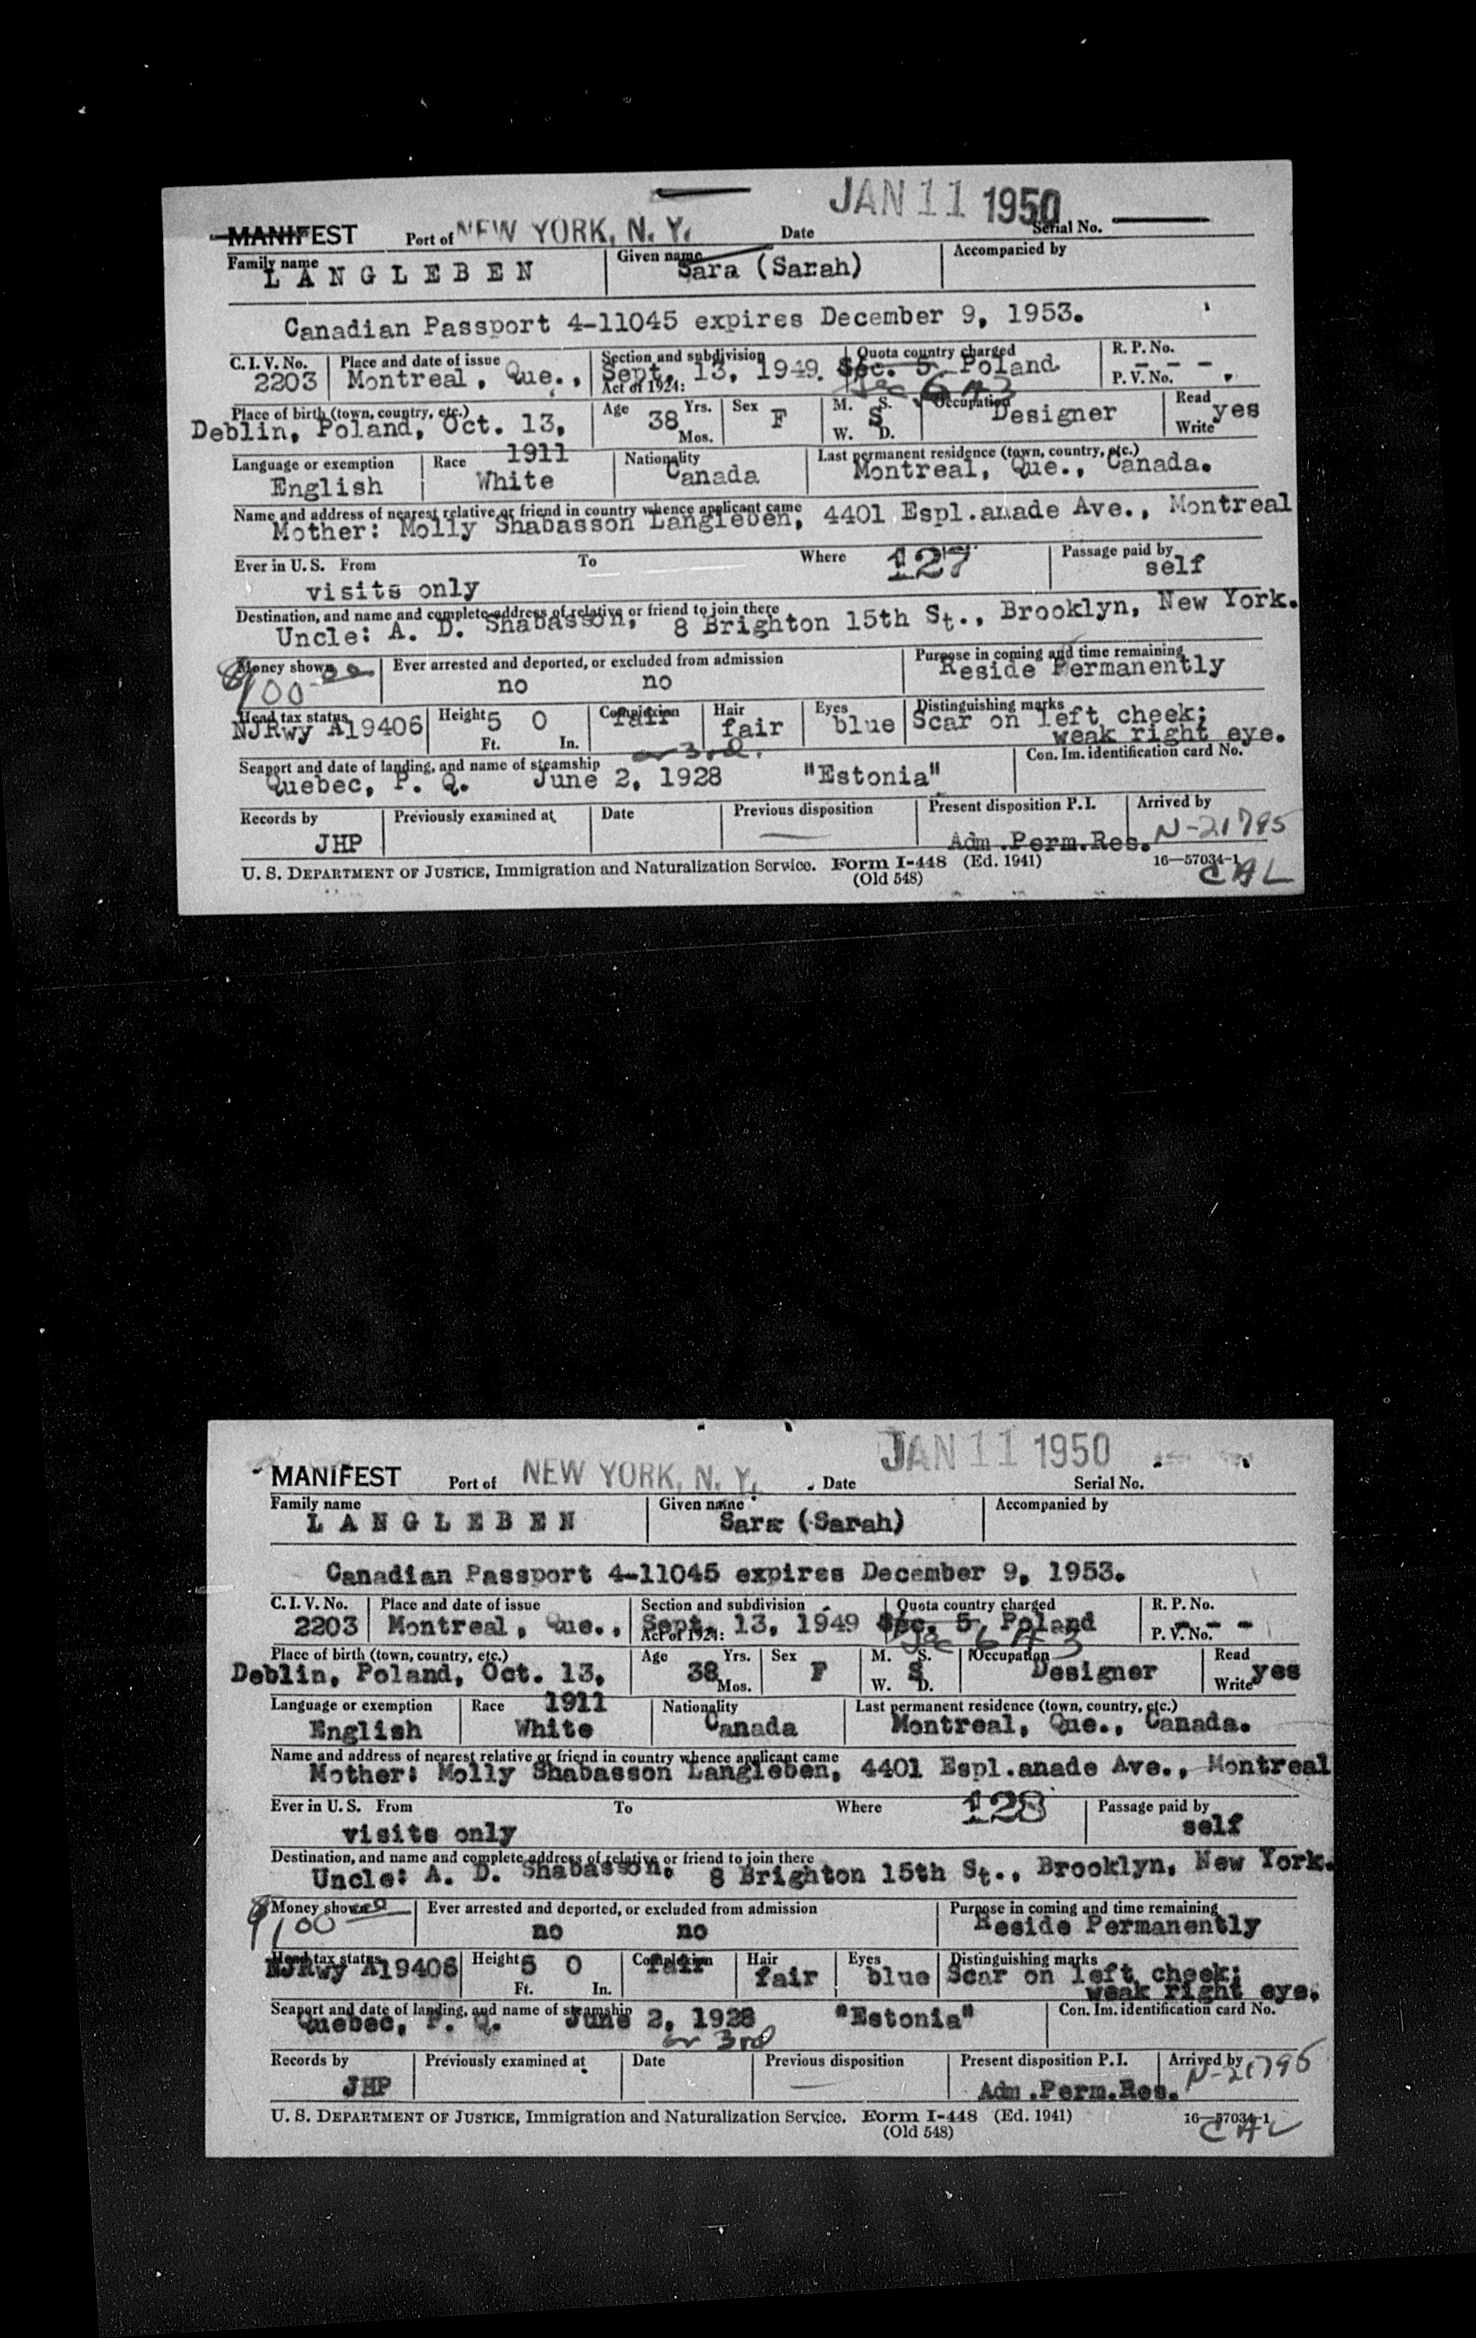 JAN 11 1950
MANIFEST Port of NEW YORK, N. Y. Date Serial No.
Family name Given name Accompanied by
LANGLEBEN Sara (Sarah)
Canadian Passport 4-11045 expires December 9, 1953.
C. I. V. No. Place and date of issue Section and subdivision Quota country charged R. P. No.
2203 Montreal, Que., Sept. 13, 1949. Sec. 5 Poland - - -
Act of 1924: Sec 6 A 3 P. V. No.
Place of birth (town, country, etc.) Age Yrs. Sex M. S. Occupation Read
Deblin, Poland, Oct. 13, 38 F S Designer yes
Mos. W. D. Write
1911
Language or exemption Race Nationality Last permanent residence (town, country, etc.)
English White Canada Montreal, Que., Canada.
Name and address of nearest relative or friend in country whence applicant came
Mother: Molly Shabasson Langleben, 4401 Espl.anade Ave., Montreal
Ever in U. S. From To Where 127 Passage paid by
visits only self
Destination, and name and complete address of relative or friend to join there
Uncle: A. D. Shabasson, 8 Brighton 15th St., Brooklyn, New York.
Money shown Ever arrested and deported, or excluded from admission Purpose in coming and time remaining
$100.00 no no Reside Permanently
Head tax status Height Complexion Hair Eyes Distinguishing marks
NJRwy A19406 5 0 fair fair blue Scar on left cheek;
Ft. In. weak right eye.
or 3rd.
Seaport and date of landing, and name of steamship Con. Im. identification card No.
Quebec, P. Q. June 2, 1928 "Estonia"
Records by Previously examined at Date Previous disposition Present disposition P. I. Arrived by
JHP Adm.Perm.Res. N-21795
U. S. DEPARTMENT OF JUSTICE, Immigration and Naturalization Service. Form I-448 (Ed. 1941) 16—57034-1
(Old 548) CAL
JAN 11 1950
MANIFEST Port of NEW YORK, N. Y. Date Serial No.
Family name Given name Accompanied by
LANGLEBEN Sara (Sarah)
Canadian Passport 4-11045 expires December 9, 1953.
C. I. V. No. Place and date of issue Section and subdivision Quota country charged R. P. No.
2203 Montreal, Que., Sept. 13, 1949 Sec. 5 Poland - - -
Act of 1924: Sec 6 A 3 P. V. No.
Place of birth (town, country, etc.) Age Yrs. Sex M. S. Occupation Read
Deblin, Poland, Oct. 13, 38 F S Designer yes
Mos. W. D. Write
1911
Language or exemption Race Nationality Last permanent residence (town, country, etc.)
English White Canada Montreal, Que., Canada.
Name and address of nearest relative or friend in country whence applicant came
Mother: Molly Shabasson Langleben, 4401 Espl.anade Ave., Montreal
Ever in U. S. From To Where 128 Passage paid by
visits only self
Destination, and name and complete address of relative or friend to join there
Uncle: A. D. Shabasson, 8 Brighton 15th St., Brooklyn, New York.
Money shown Ever arrested and deported, or excluded from admission Purpose in coming and time remaining
$100.00 no no Reside Permanently
Head tax status Height Complexion Hair Eyes Distinguishing marks
NJRwy A19406 5 0 fair fair blue Scar on left cheek;
Ft. In. weak right eye.
Seaport and date of landing, and name of steamship Con. Im. identification card No.
Quebec, P. Q. June 2, 1928 "Estonia"
or 3rd
Records by Previously examined at Date Previous disposition Present disposition P. I. Arrived by
JHP Adm.Perm.Res. N-21795
U. S. DEPARTMENT OF JUSTICE, Immigration and Naturalization Service. Form I-448 (Ed. 1941) 16—57034-1
(Old 548) CAL